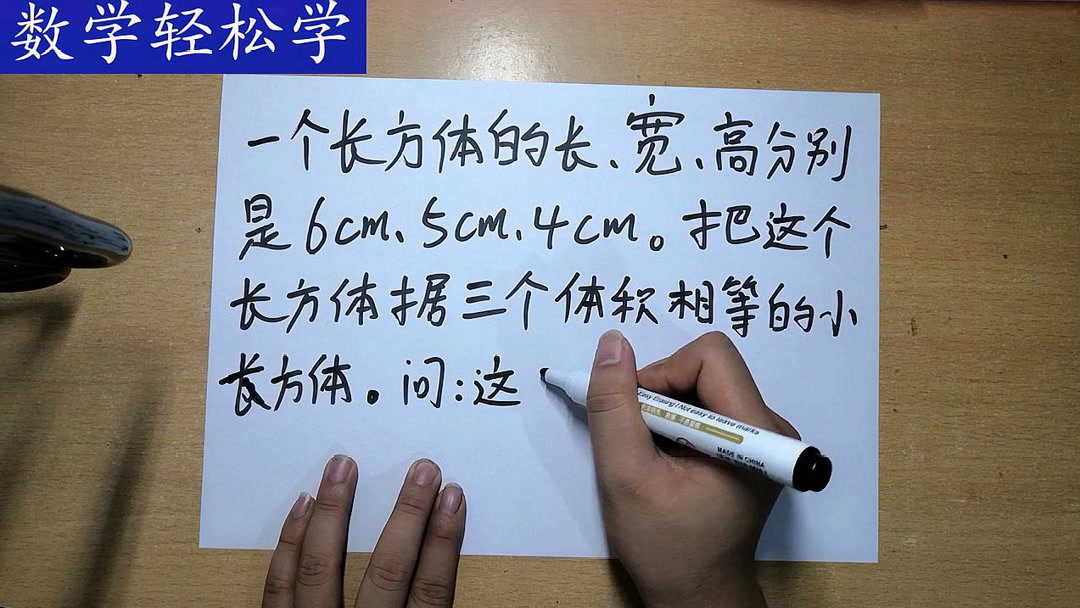 数学轻松学
一个长方体的长、宽、高分别
是6cm、5cm、4cm。把这个
长方体据三个体积相等的小
长方体。问:这
Easy Erasing / Not easy to leave marks
MADE IN CHINA